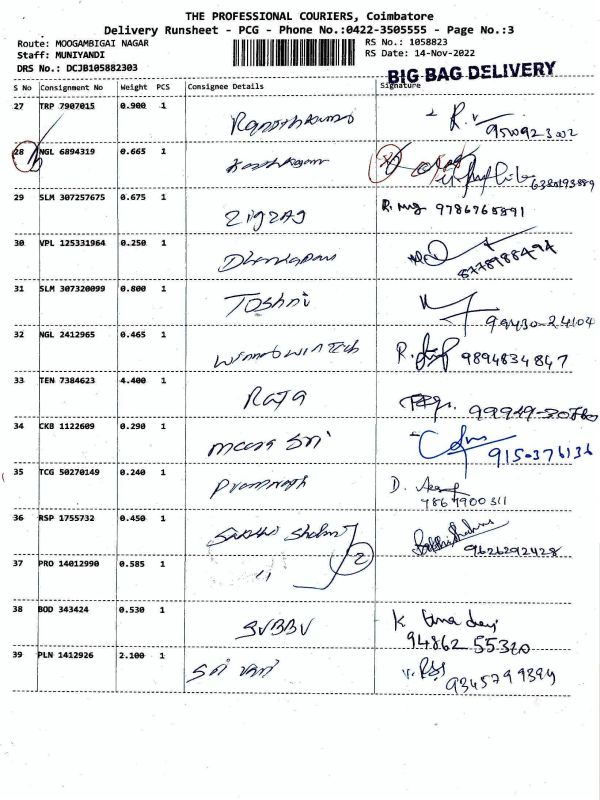 THE PROFESSIONAL COURIERS, Coimbatore
Delivery Runsheet - PCG - Phone No.:0422-3505555 - Page No.:3
Route: MOOGAMBIGAI NAGAR RS No.: 1058823
Staff: MUNIYANDI RS Date: 14-Nov-2022
DRS No.: DCJB105882303 BIG BAG DELIVERY
S No Consignment No Weight PCS Consignee Details Signature
27 TRP 7907015 0.900 1
28 NGL 6894319 0.665 1
29 SLM 307257675 0.675 1 ZIGZAG 9786765891
30 VPL 125331964 0.250 1 8778988494
31 SLM 307320099 0.800 1 TOShNi 99430-24104
32 NGL 2412965 0.465 1 9894834847
33 TEN 7384623 4.400 1 RAJA
34 CKB 1122609 0.290 1 meera Sri 915-376136
35 TCG 50270149 0.240 1 Premnath D.
7867900311
36 RSP 1755732 0.450 1 9626292428
37 PRO 14012990 0.585 1 " 2
38 BOD 343424 0.530 1 SVBBV K
94862 55320
39 PLN 1412926 2.100 1 Sri vari 9345799394